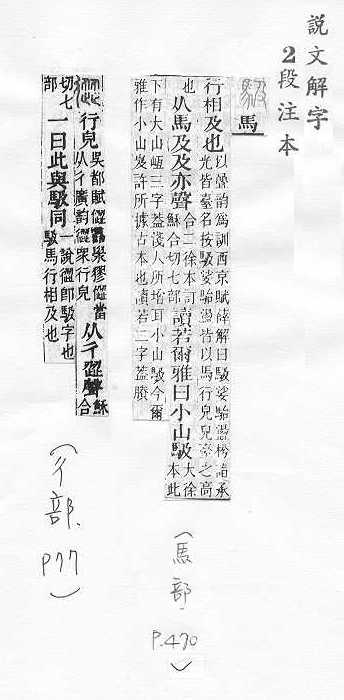 説文解字
2段注本
馬
行相及也
以疊韵爲訓西京賦薛解曰馺娑駘盪枍詣承
光皆臺名按馺娑駘盪皆以馬行皃皃臺之高
也
从馬及及亦聲
合二徐本訂
穌合切七部
讀若爾雅曰小山馺
大徐
本此
下有大山峘三字葢淺人所增耳小山馺今爾
雅作小山岌許所據古本也讀若二字葢賸
(馬部. P.470)
行皃
吳都賦
廣韵 衆行皃
从彳歰聲
穌合
切七
部
一曰此與馺同
一說 卽馺字也
馺馬行相及也
(彳部. P77)